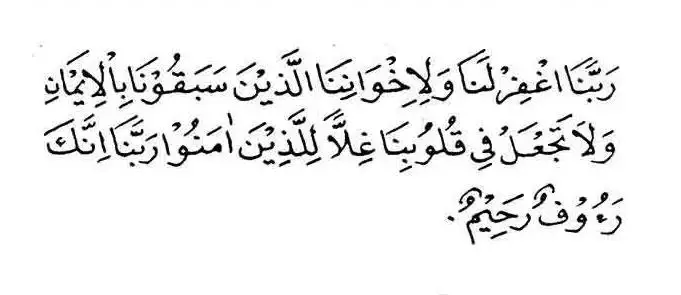 رَبَّنَا اغْفِرْ لَنَا وَلِاِخْوَانِنَا الَّذِيْنَ سَبَقُوْنَا بِاْلاِيْمَانِ
وَلاَ تَجْعَلْ فِيْ قُلُوْبِنَا غِلاًّ لِلَّذِيْنَ اٰمَنُوْا رَبَّنَا اِنَّكَ
رَءُوْفٌ رَحِيْمٌ.